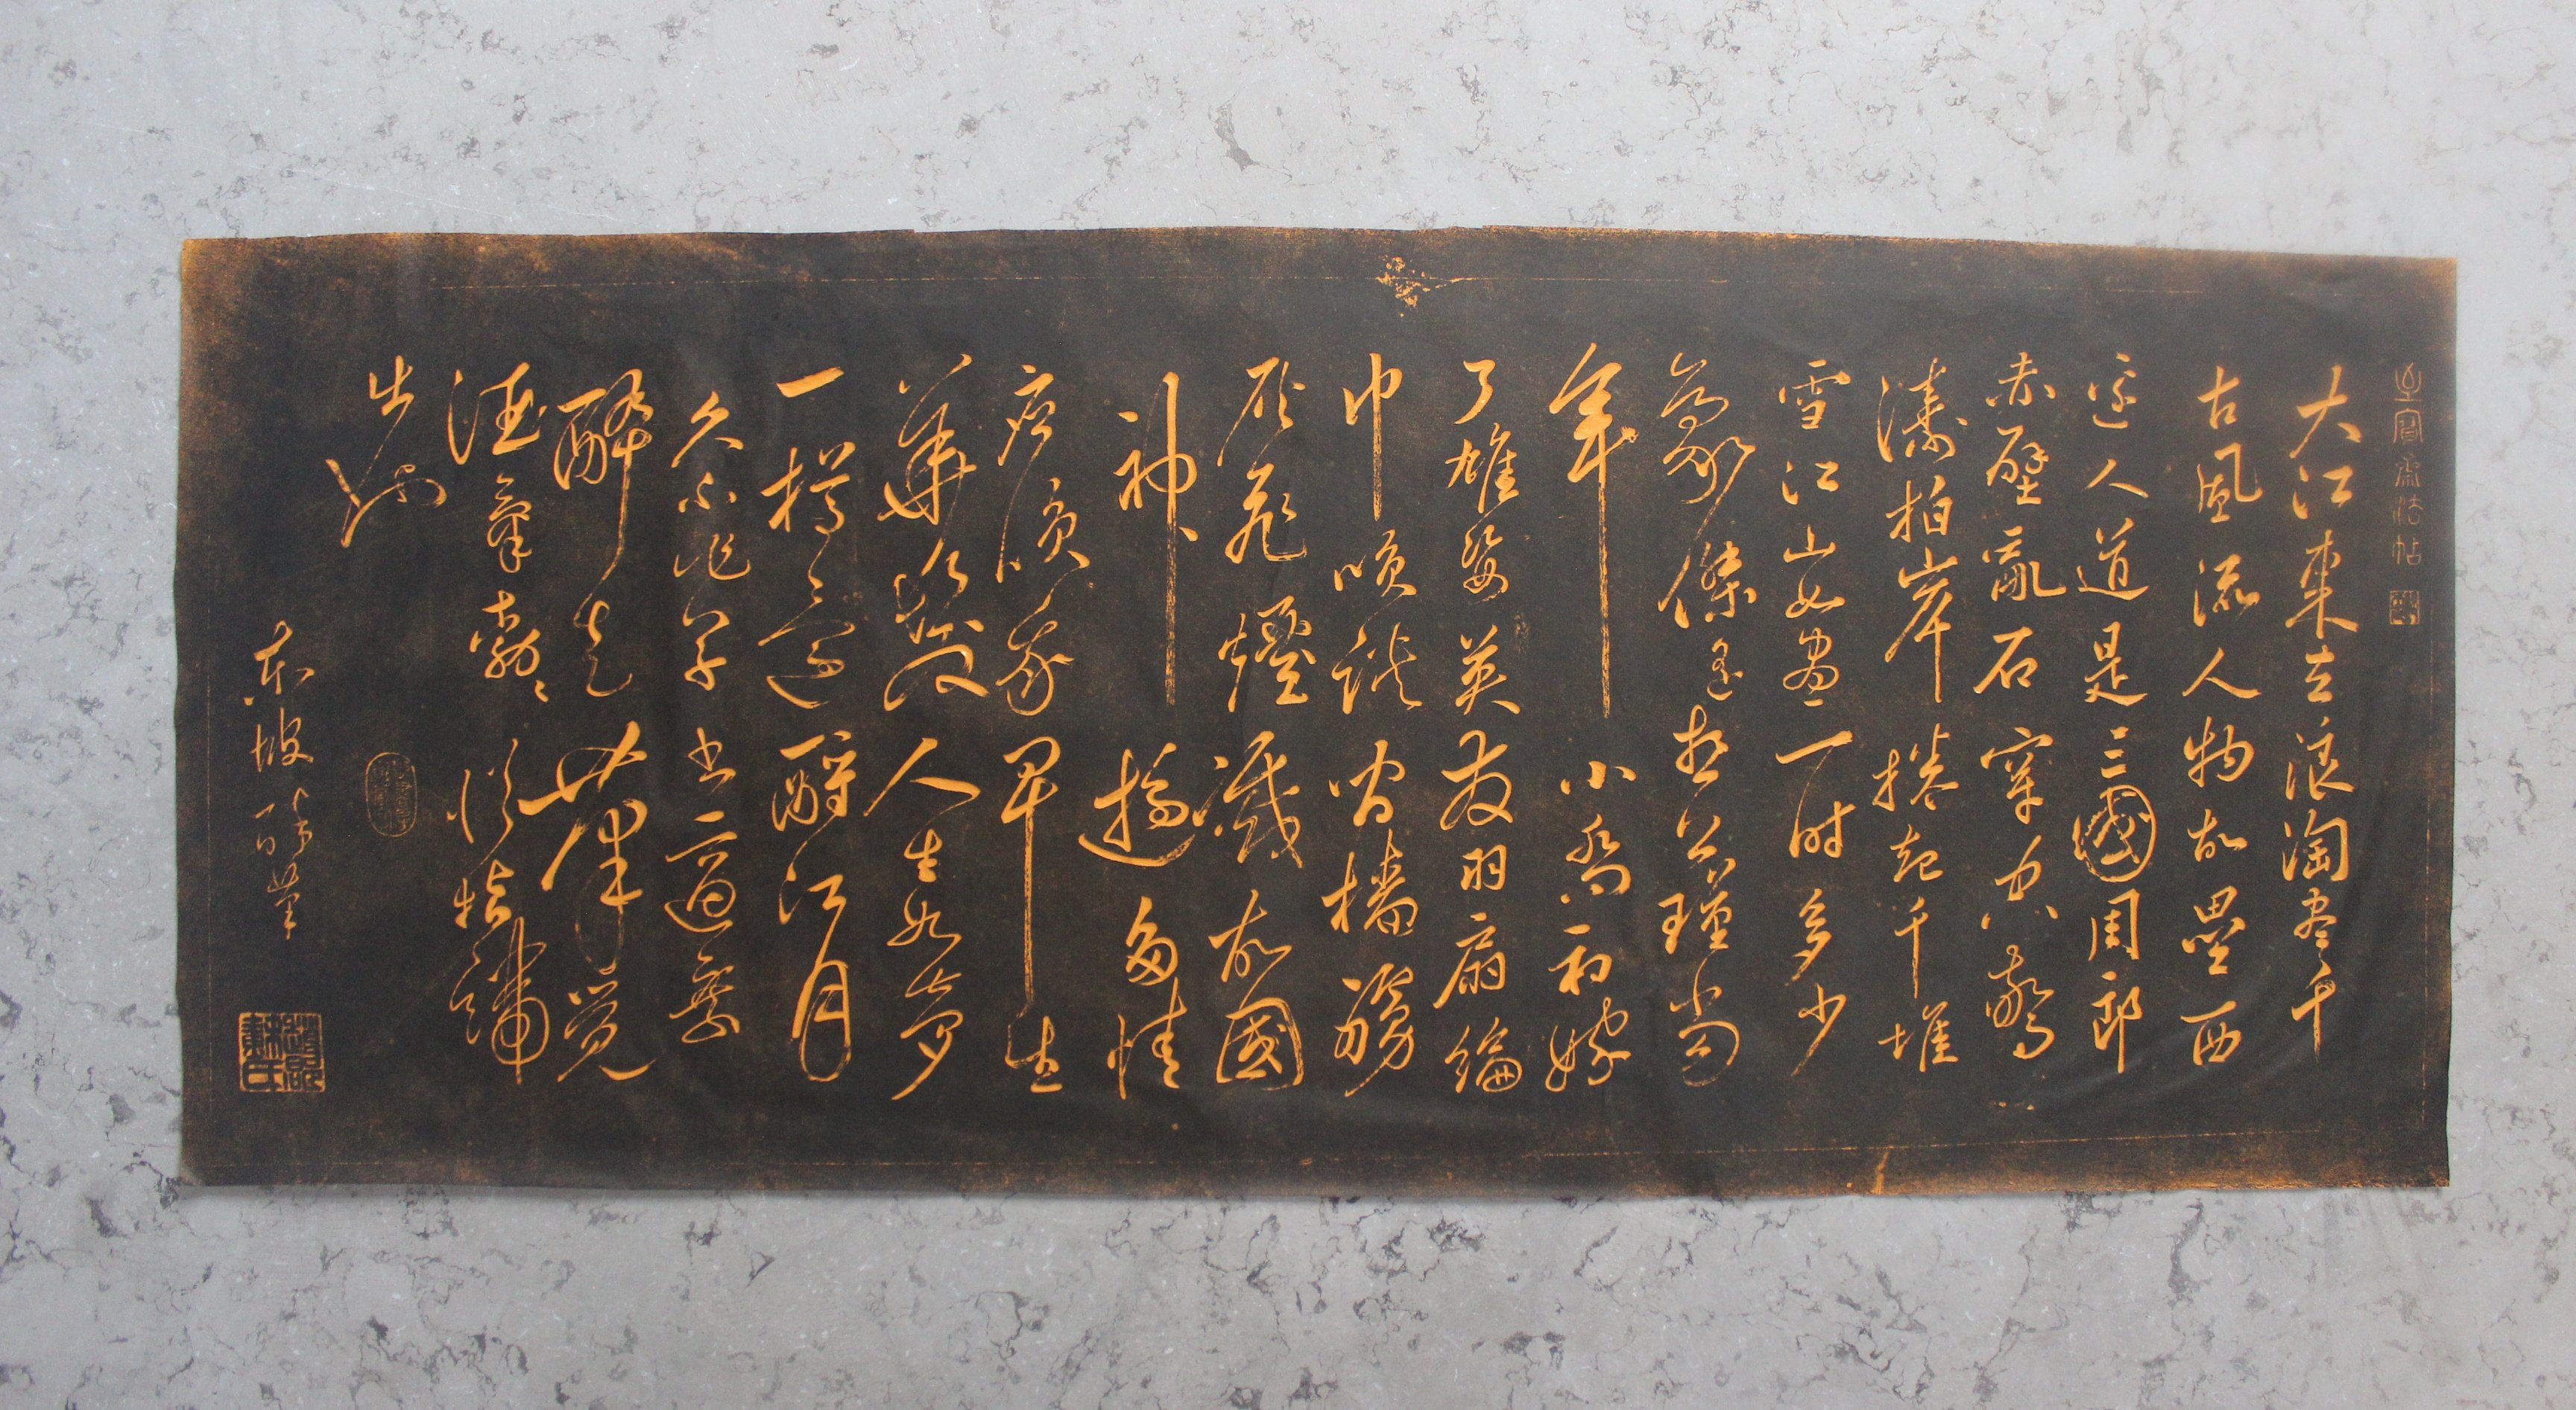 至寶齋法帖
大江東去浪淘盡千
古風流人物故壘西
邊人道是三國周郎
赤壁亂石穿空驚
濤拍岸捲起千堆
雪江山如畫一時多少
豪傑遙想公瑾當
年小喬初嫁
了雄姿英發羽扇綸
巾咲談間檣艣
灰飛煙滅故國
神遊多情
應咲我早生
華髮人生如夢
一樽還酹江月
久不作草書適乘
醉走筆覺
酒氣勃勃從指端
出也
東坡醉筆